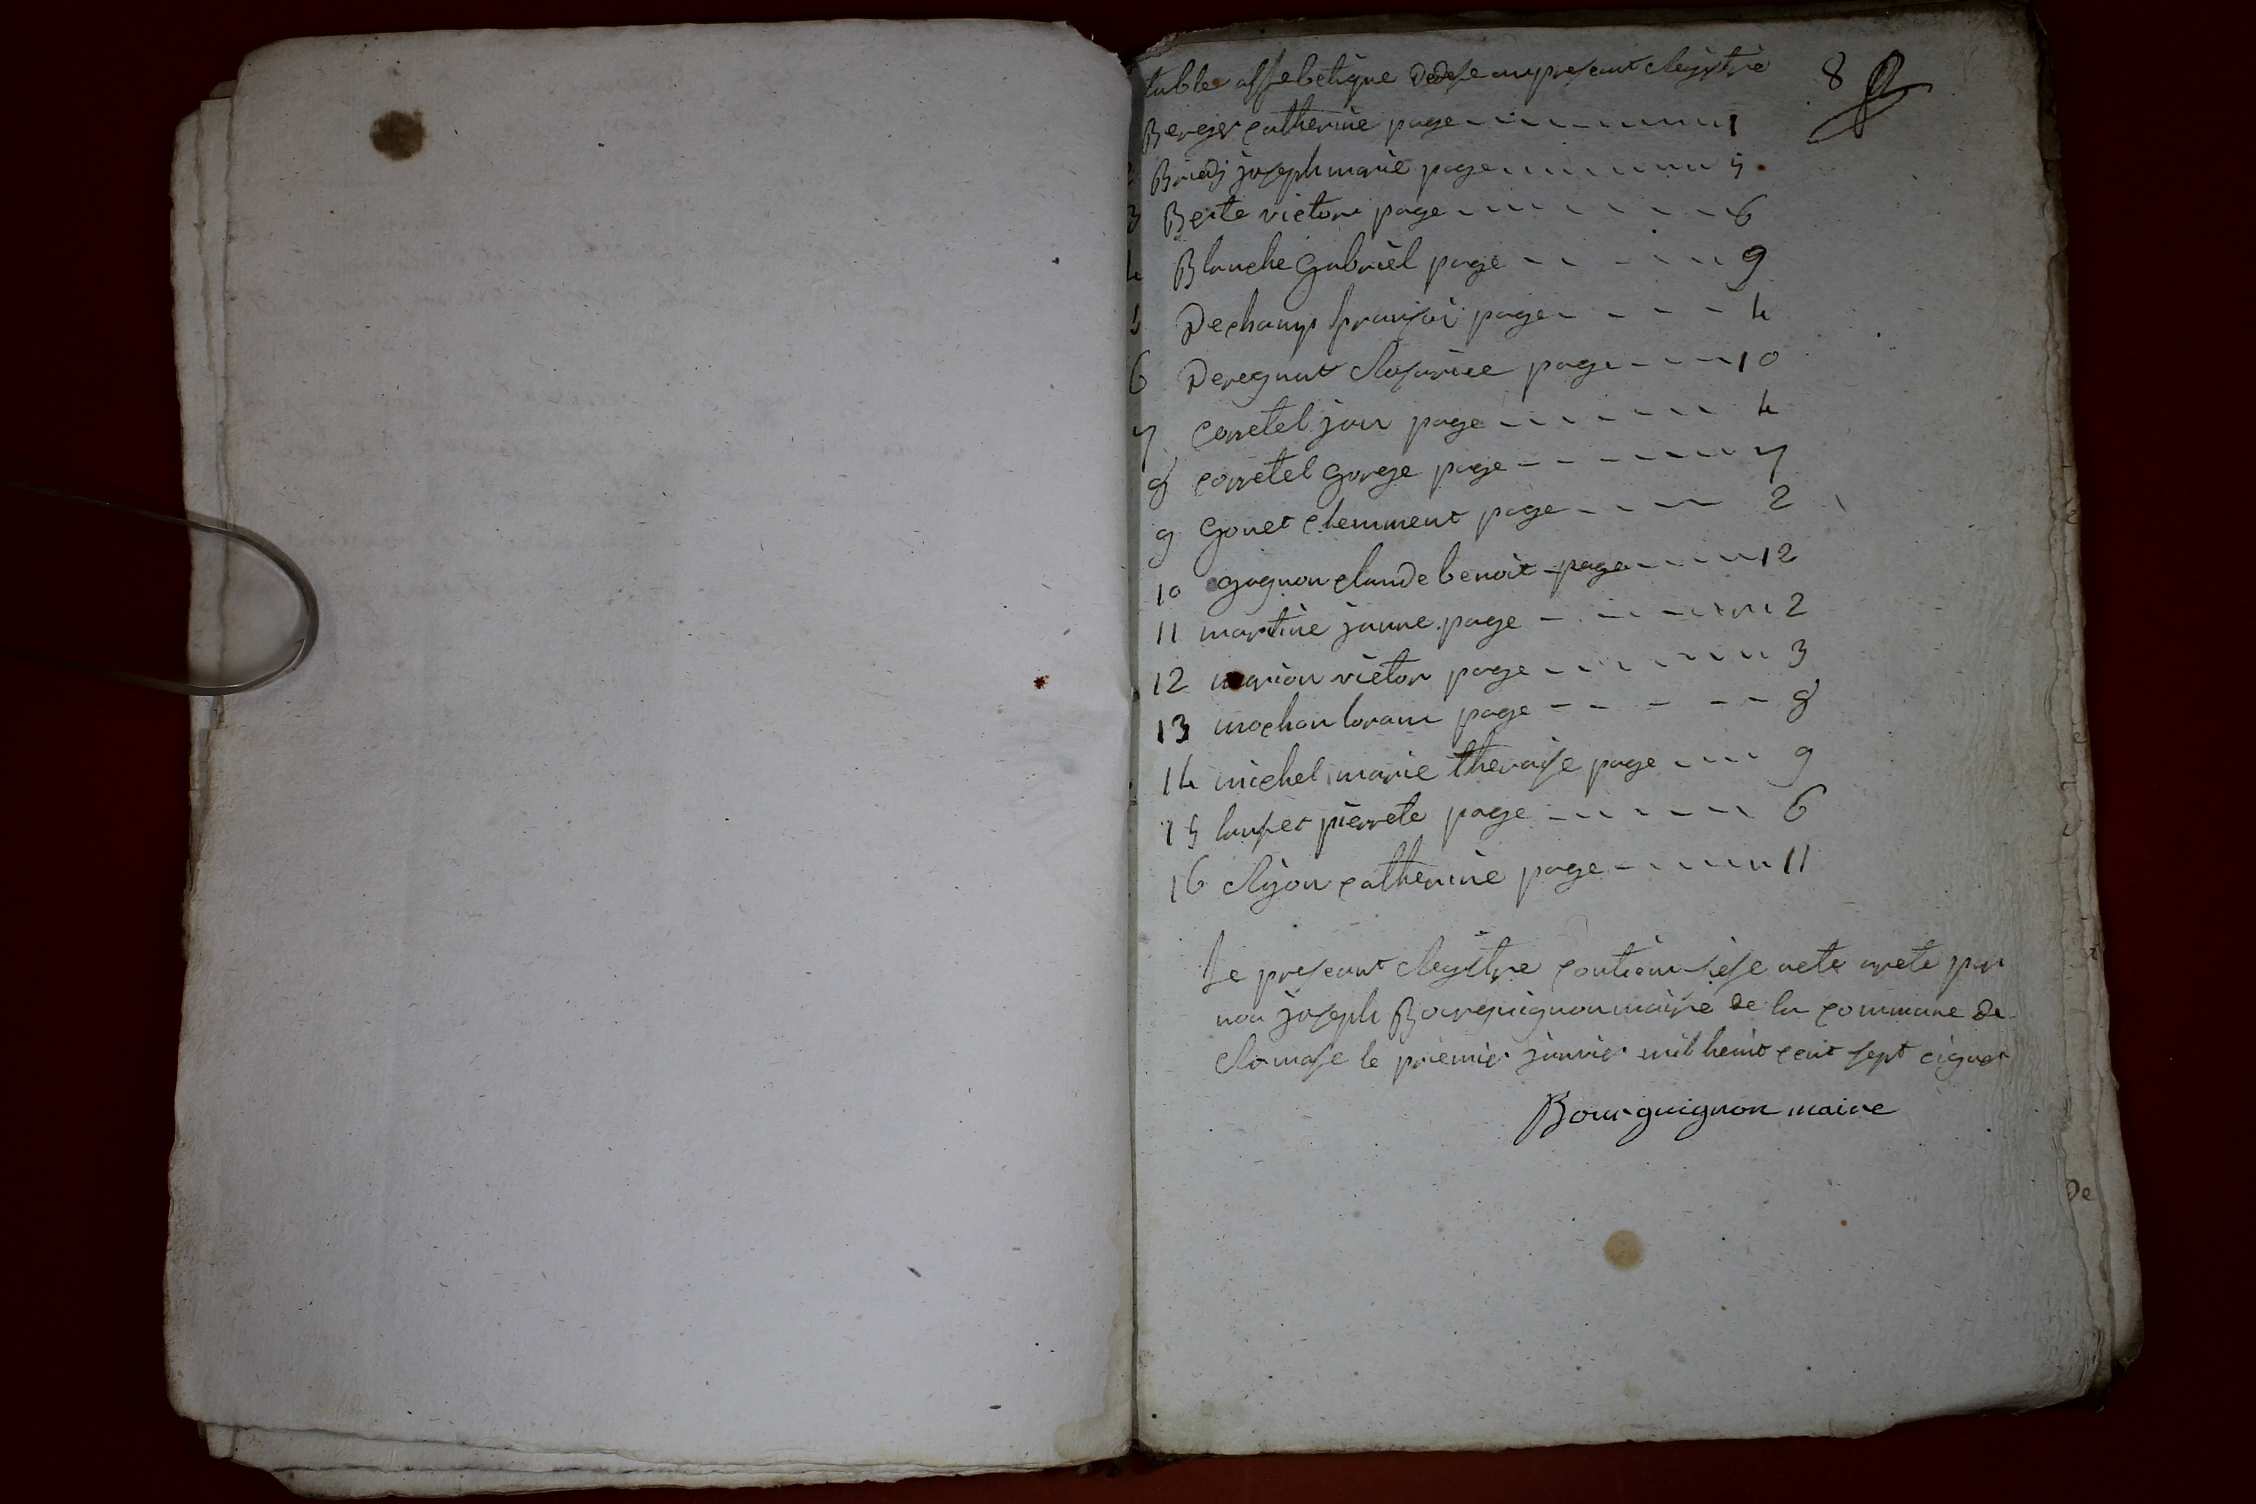 table alfebetique Dedese au presant Registre 8
Berger catherine page 1
2 Briedj joseph marie page 5
3 Berte victor page 6
4 Blanche Gabriel page 9
5 Dechamp fransoi page 4
6 Deregnaut Rosariee page 10
7 corretel jan page 4
8 corretel gorge page 7
9 Gonet clemment page 2
10 gagnon claude benoit page 12
11 martine janne page 2
12 marion victor page 3
13 mochan loran page 8
14 michel marie theraise page 9
15 lanset pierrete page 6
16 Rijon catherine page 11
Le presant Registre contien sese acte arete par
nou joseph Bourguignon maire de la commune de
Romase le premie janvie mil heuit cent sept
Bourguignon maire
De